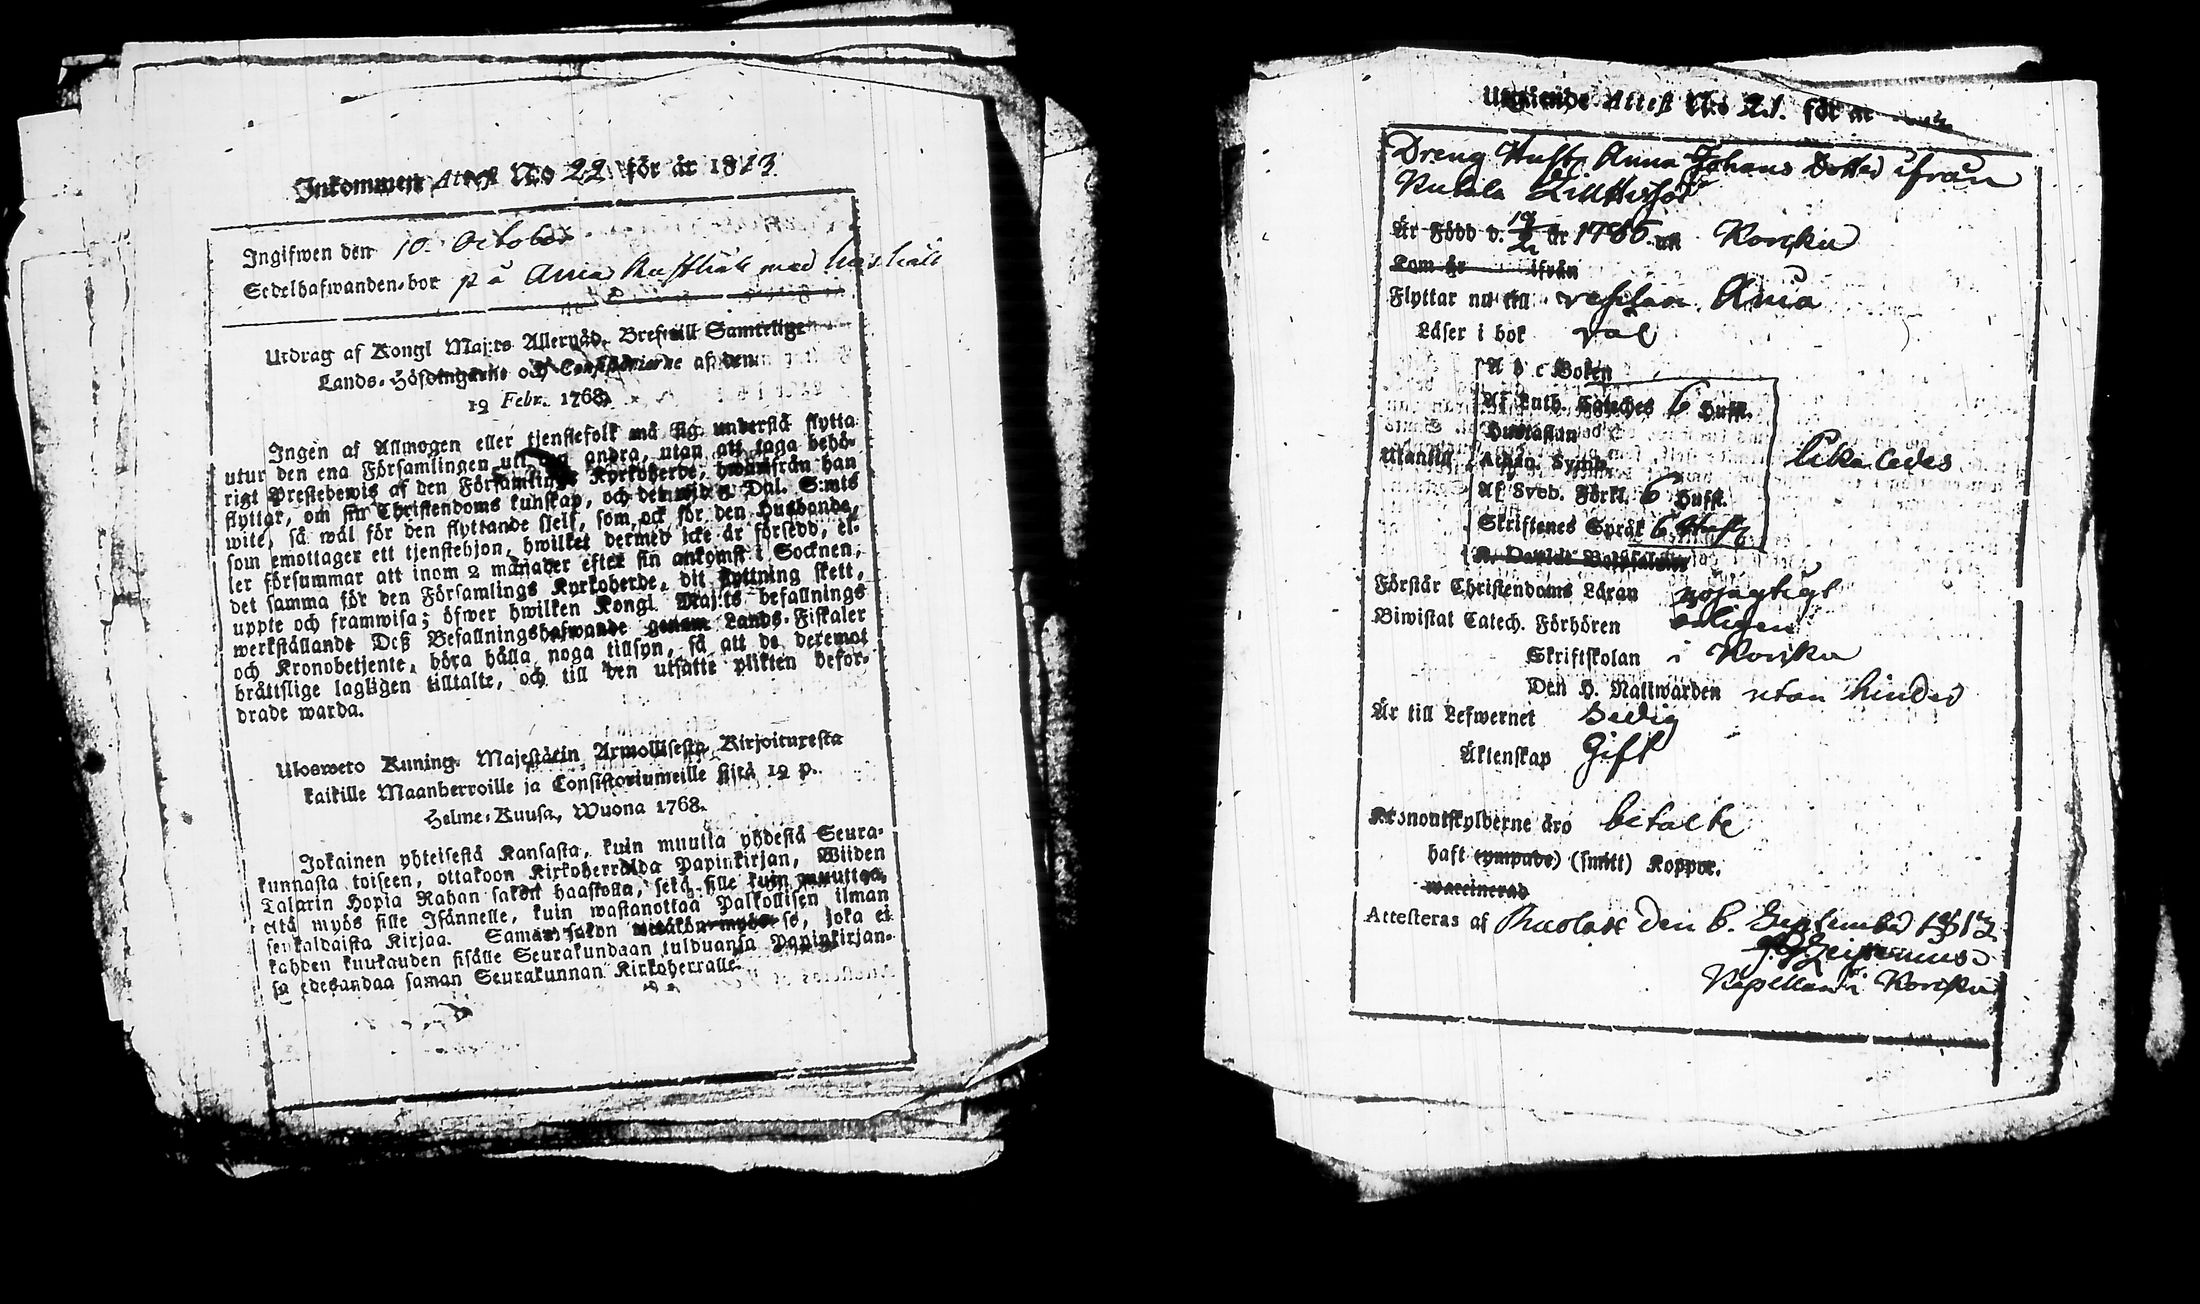 Inkommen Attest No 22 för år 1813.
Ingifwen den 10. October
Sedelhafwanden-bor på Ania Rusthåll med
Utdrag af Kongl Maj:ts Allernåd. Bref till Samtelige
Lands-Höfdingarne och Consistorierne af den
19 Febr. 1768.
Ingen af Allmogen eller tjenstefolk må sig understå flytta
utur den ena Församlingen uti den andra, utan att taga behö-
rigt Prestebewis af den Församlings Kyrkoherde, hwarifrån han
flyttar, om sin Christendoms kunskap, och det wid 5 Dal. S:mts
wite, så wäl för den flyttande sielf, som ock för den Husbonde,
som emottager ett tjenstehjon, hwilket dermed icke är försedd, el-
ler försummar att inom 2 månader efter sin ankomst i Socknen,
det samma för den Församlings Kyrkoherde, dit flyttning skett,
uppte och framwisa; öfwer hwilken Kongl. Maj:ts befallnings
werkställande Deß Befallningshafwande genom Lands-Fiskaler
och Kronobetjente, böra hålla noga tillsyn, så att de deremot
bråttslige lagligen tilltalte, och till den utsatte plikten befor-
drade warda.
Uloswetο Kuning. Majestätin Armollisesta Kirjoituxesta
kaikille Maanherroille ja Consistoriumeille sijtä 19 p.
Helme-Kuusa, Wuona 1768.
Jokainen yhteisestä Kansasta, kuin muutta yhdestä Seura-
kunnasta toiseen, ottakoon Kirkoherralda Papinkirjan, Wiiden
Talarin Hopia Rahan sakon haastolla, sekä sille kuin muuttaa,
että myös sille Isännelle, kuin wastanottaa Palkollisen ilman
senkaldaista Kirjaa. Saman sakon wetäkön myös se, joka ei
kahden kuukauden sisälle Seurakundaan tulduansa Papinkirjan-
sa edesandaa saman Seurakunnan Kirkoherralle.
Utgående Attest No 21. för år
Dreng Hustr Anna Johans Dotter ifrån
Är Född d. 19/2 år 1786 uti Korsku
Kom år ifrån
Flyttar nu till Ania
Läser i bok väl
A b c Boken
Af Luth. Catches 6 Huffl.
Hustaflan
Utantill Athan. Symb. lika ledes
Af Sveb. Förkl. 6 Huffl.
Skriftenes Språk 6
Förstår Christendoms Läran nöjagtigt
Biwistat Catech. Förhören
Skriftskolan i Korsku
Den H. Nattwarden utan hinder
Är till Lefwernet Sedig
Äktenskap Gift
Kronoutskylderne äro betalte
haft (ympade) (smitt) Koppor.
waccinerad
Attesteras af den 6. September 1813
Kapellan i Korsku